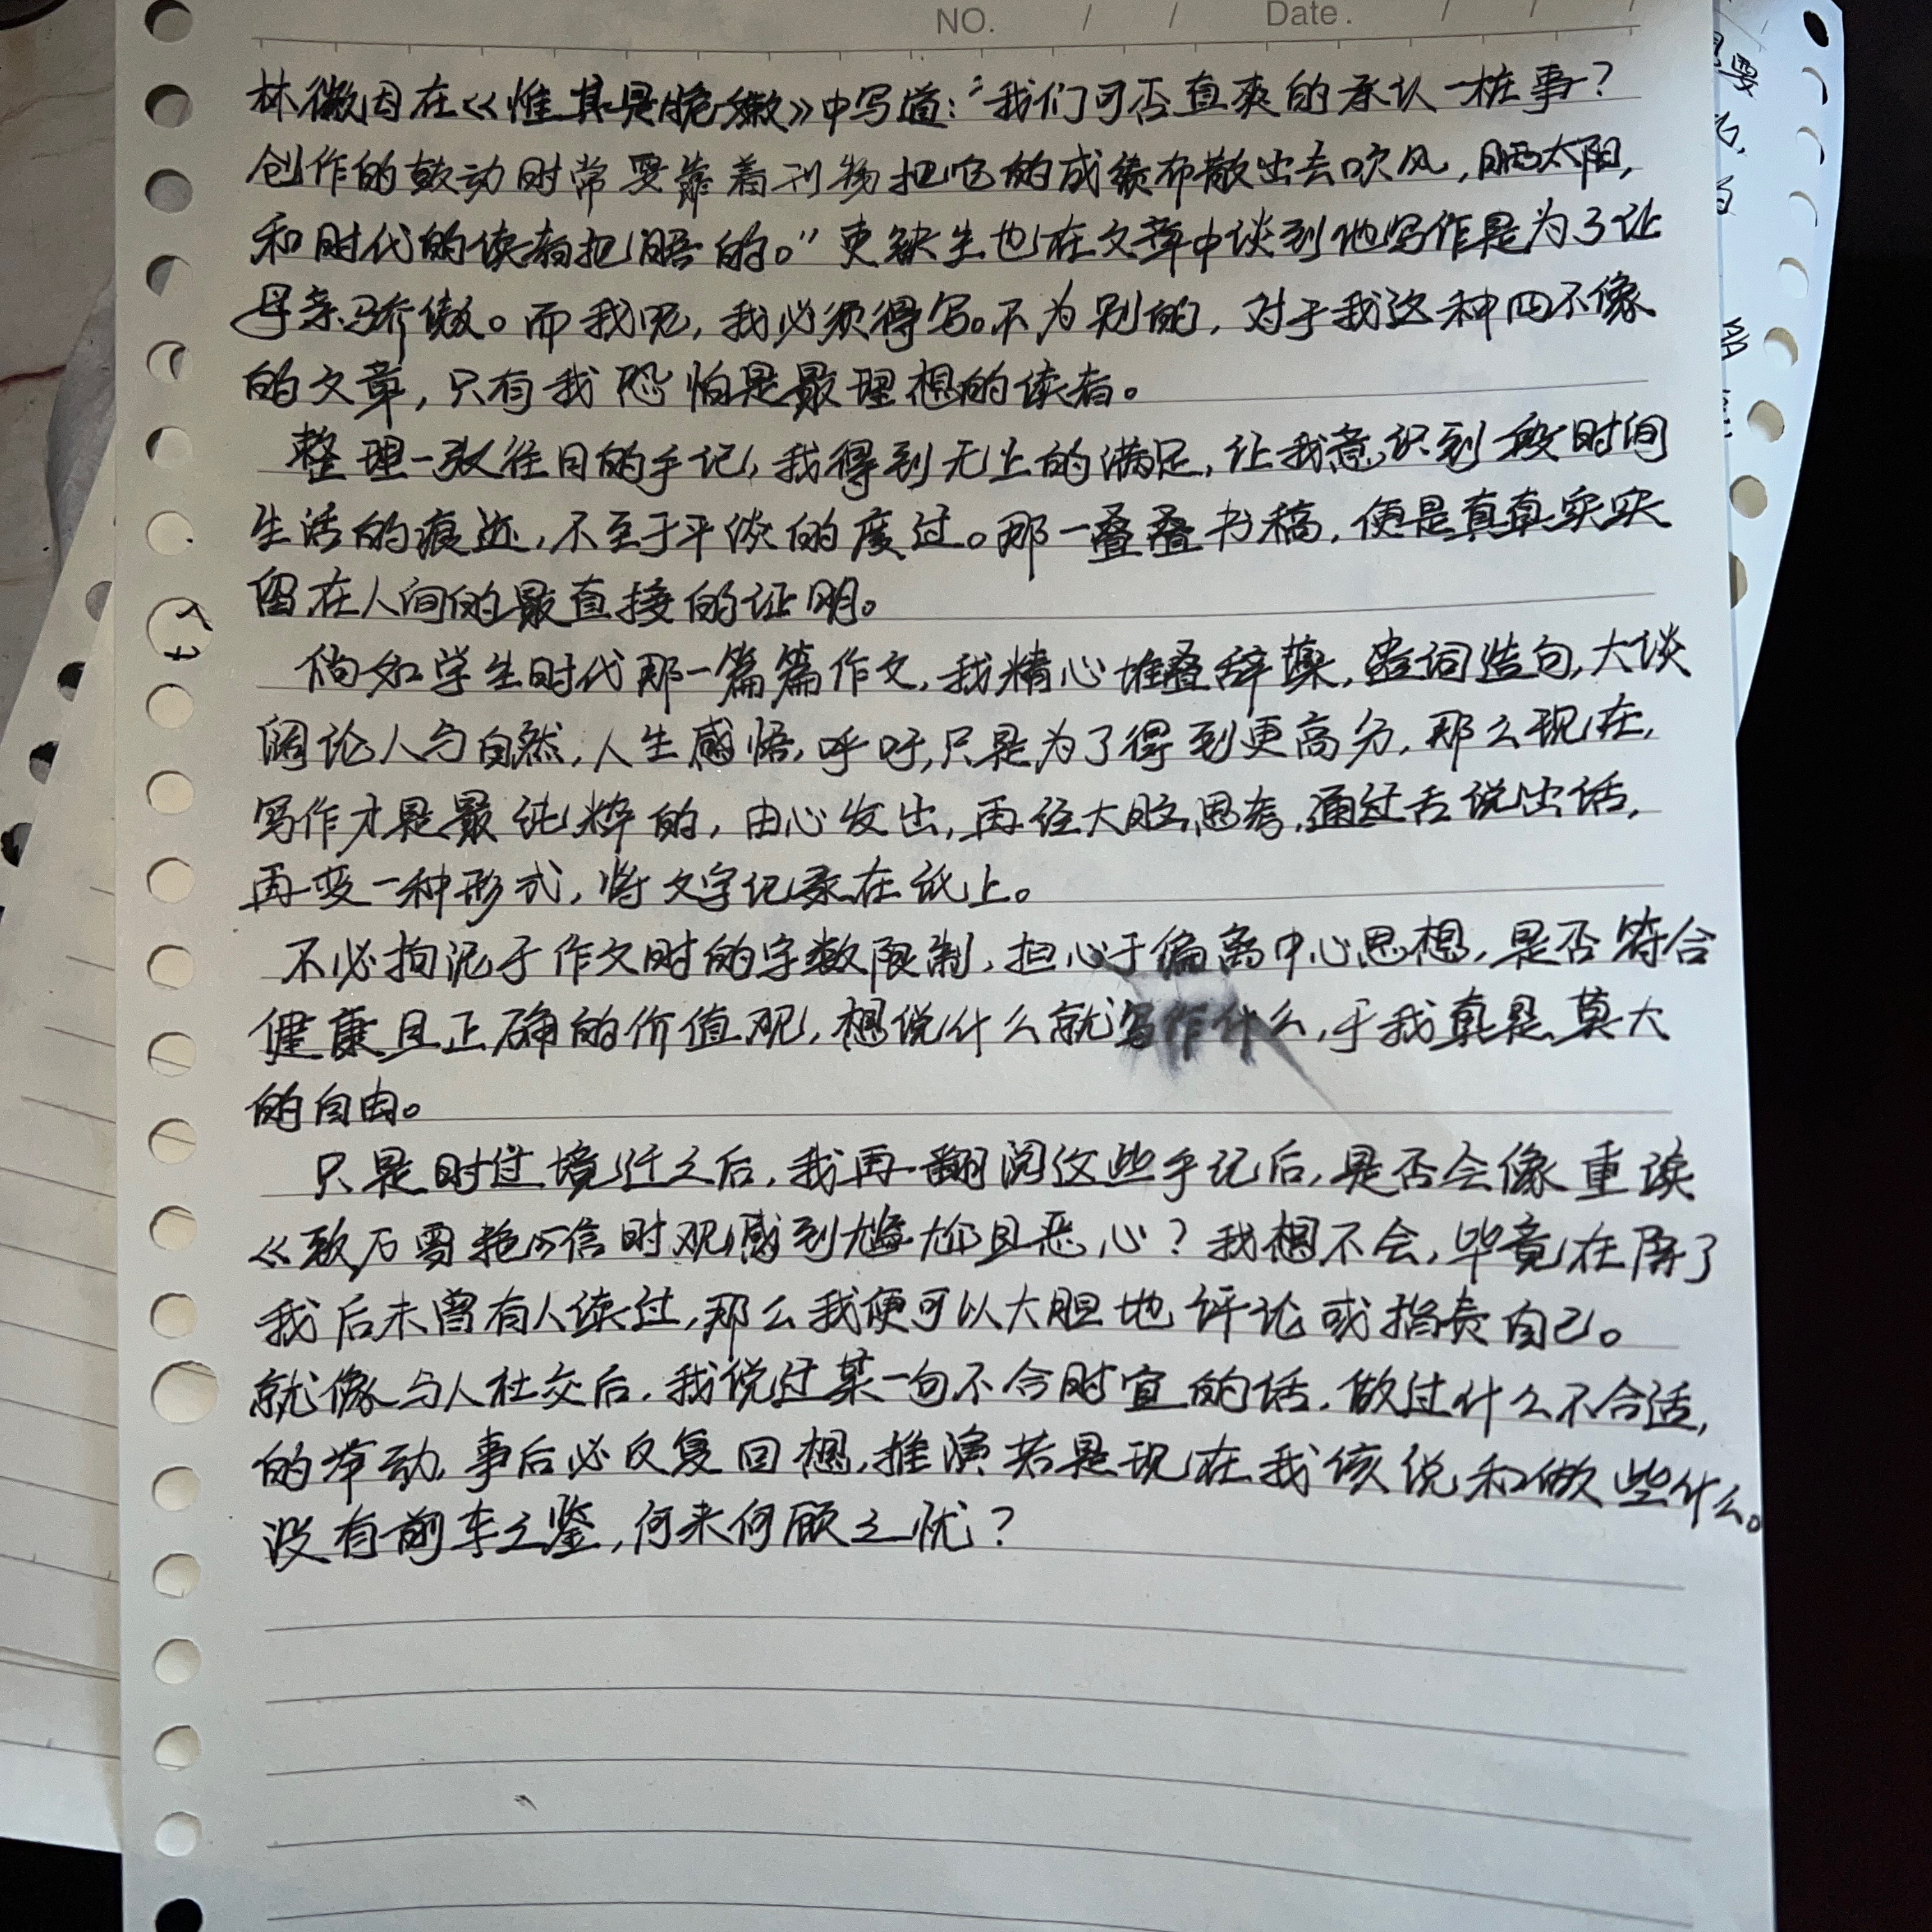 NO. / / Date. / /
林徽因在《惟其是脆嫩》中写道:“我们可否直爽的承认一桩事?
创作的鼓动时常要靠着刊物把它的成绩布散出去吹风,晒太阳,
和时代的读者把晤的。”史铁生也在文章中谈到他写作是为了让
母亲骄傲。而我呢,我必须得写。不为别的,对于我这种四不像
的文章,只有我恐怕是最理想的读者。
整理一张往日的手记,我得到无上的满足,让我意识到段时间
生活的痕迹,不至于平淡的度过。那一叠叠书稿,便是真真实实
留在人间的最直接的证明。
倘如学生时代那一篇篇作文,我精心堆叠辞藻,造词造句,大谈
阔论人与自然,人生感悟,呼吁,只是为了得到更高分,那么现在,
写作才是最纯粹的,由心发出,再经大脑思考,通过舌说出话,
再变一种形式,将文字记录在纸上。
不必拘泥于作文时的字数限制,担心于偏离中心思想,是否符合
健康且正确的价值观,想说什么就写作什么,于我真是莫大
的自由。
只是时过境迁之后,我再翻阅这些手记后,是否会像重读
《致 信时观感到尴尬且恶心?我想不会,毕竟在除了
我后未曾有人读过,那么我便可以大胆地评论或指责自己。
就像与人社交后,我说过某一句不合时宜的话,做过什么不合适,
的举动,事后必反复回想,推演若是现在我该说和做些什么。
没有前车之鉴,何来何顾之忧?